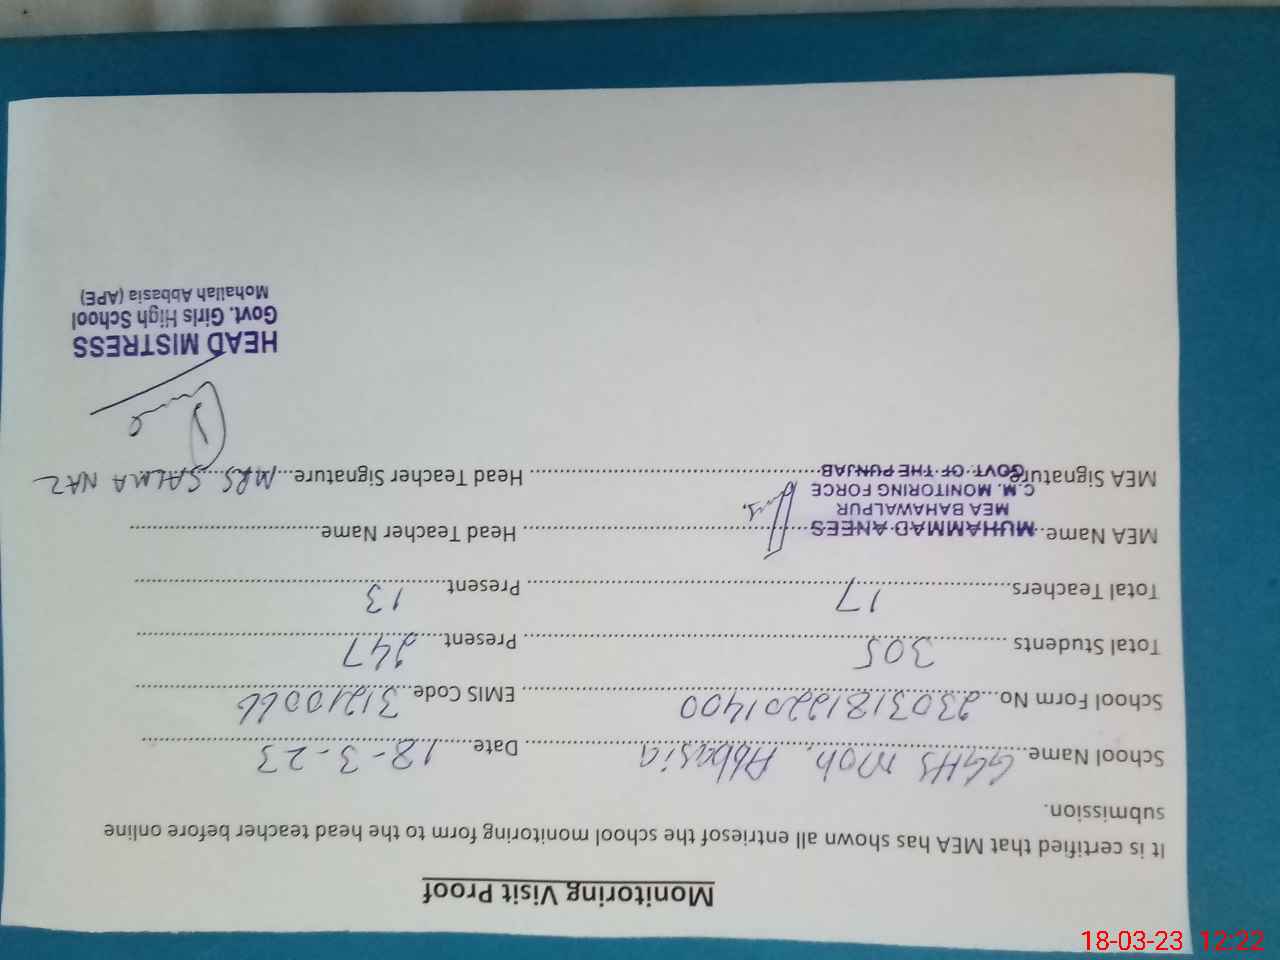 Monitoring Visit Proof
It is certified that MEA has shown all entriesof the school monitoring form to the head teacher before online
submission.
School Name GGHS Moh. Abbasia Date 18-3-23
School Form No 23031812201400 EMIS Code 31210066
Total Students 305 Present 247
Total Teachers 17 Present 13
MEA Name MUHAMMAD ANEES Head Teacher Name
MEA BAHAWALPUR
C.M. MONITORING FORCE
GOVT OF THE PUNJAB
MEA Signature Head Teacher Signature MRS. SALMA NAZ
HEAD MISTRESS
Govt. Girls High School
Mohallah Abbasia (APE)
18-03-23 12:22